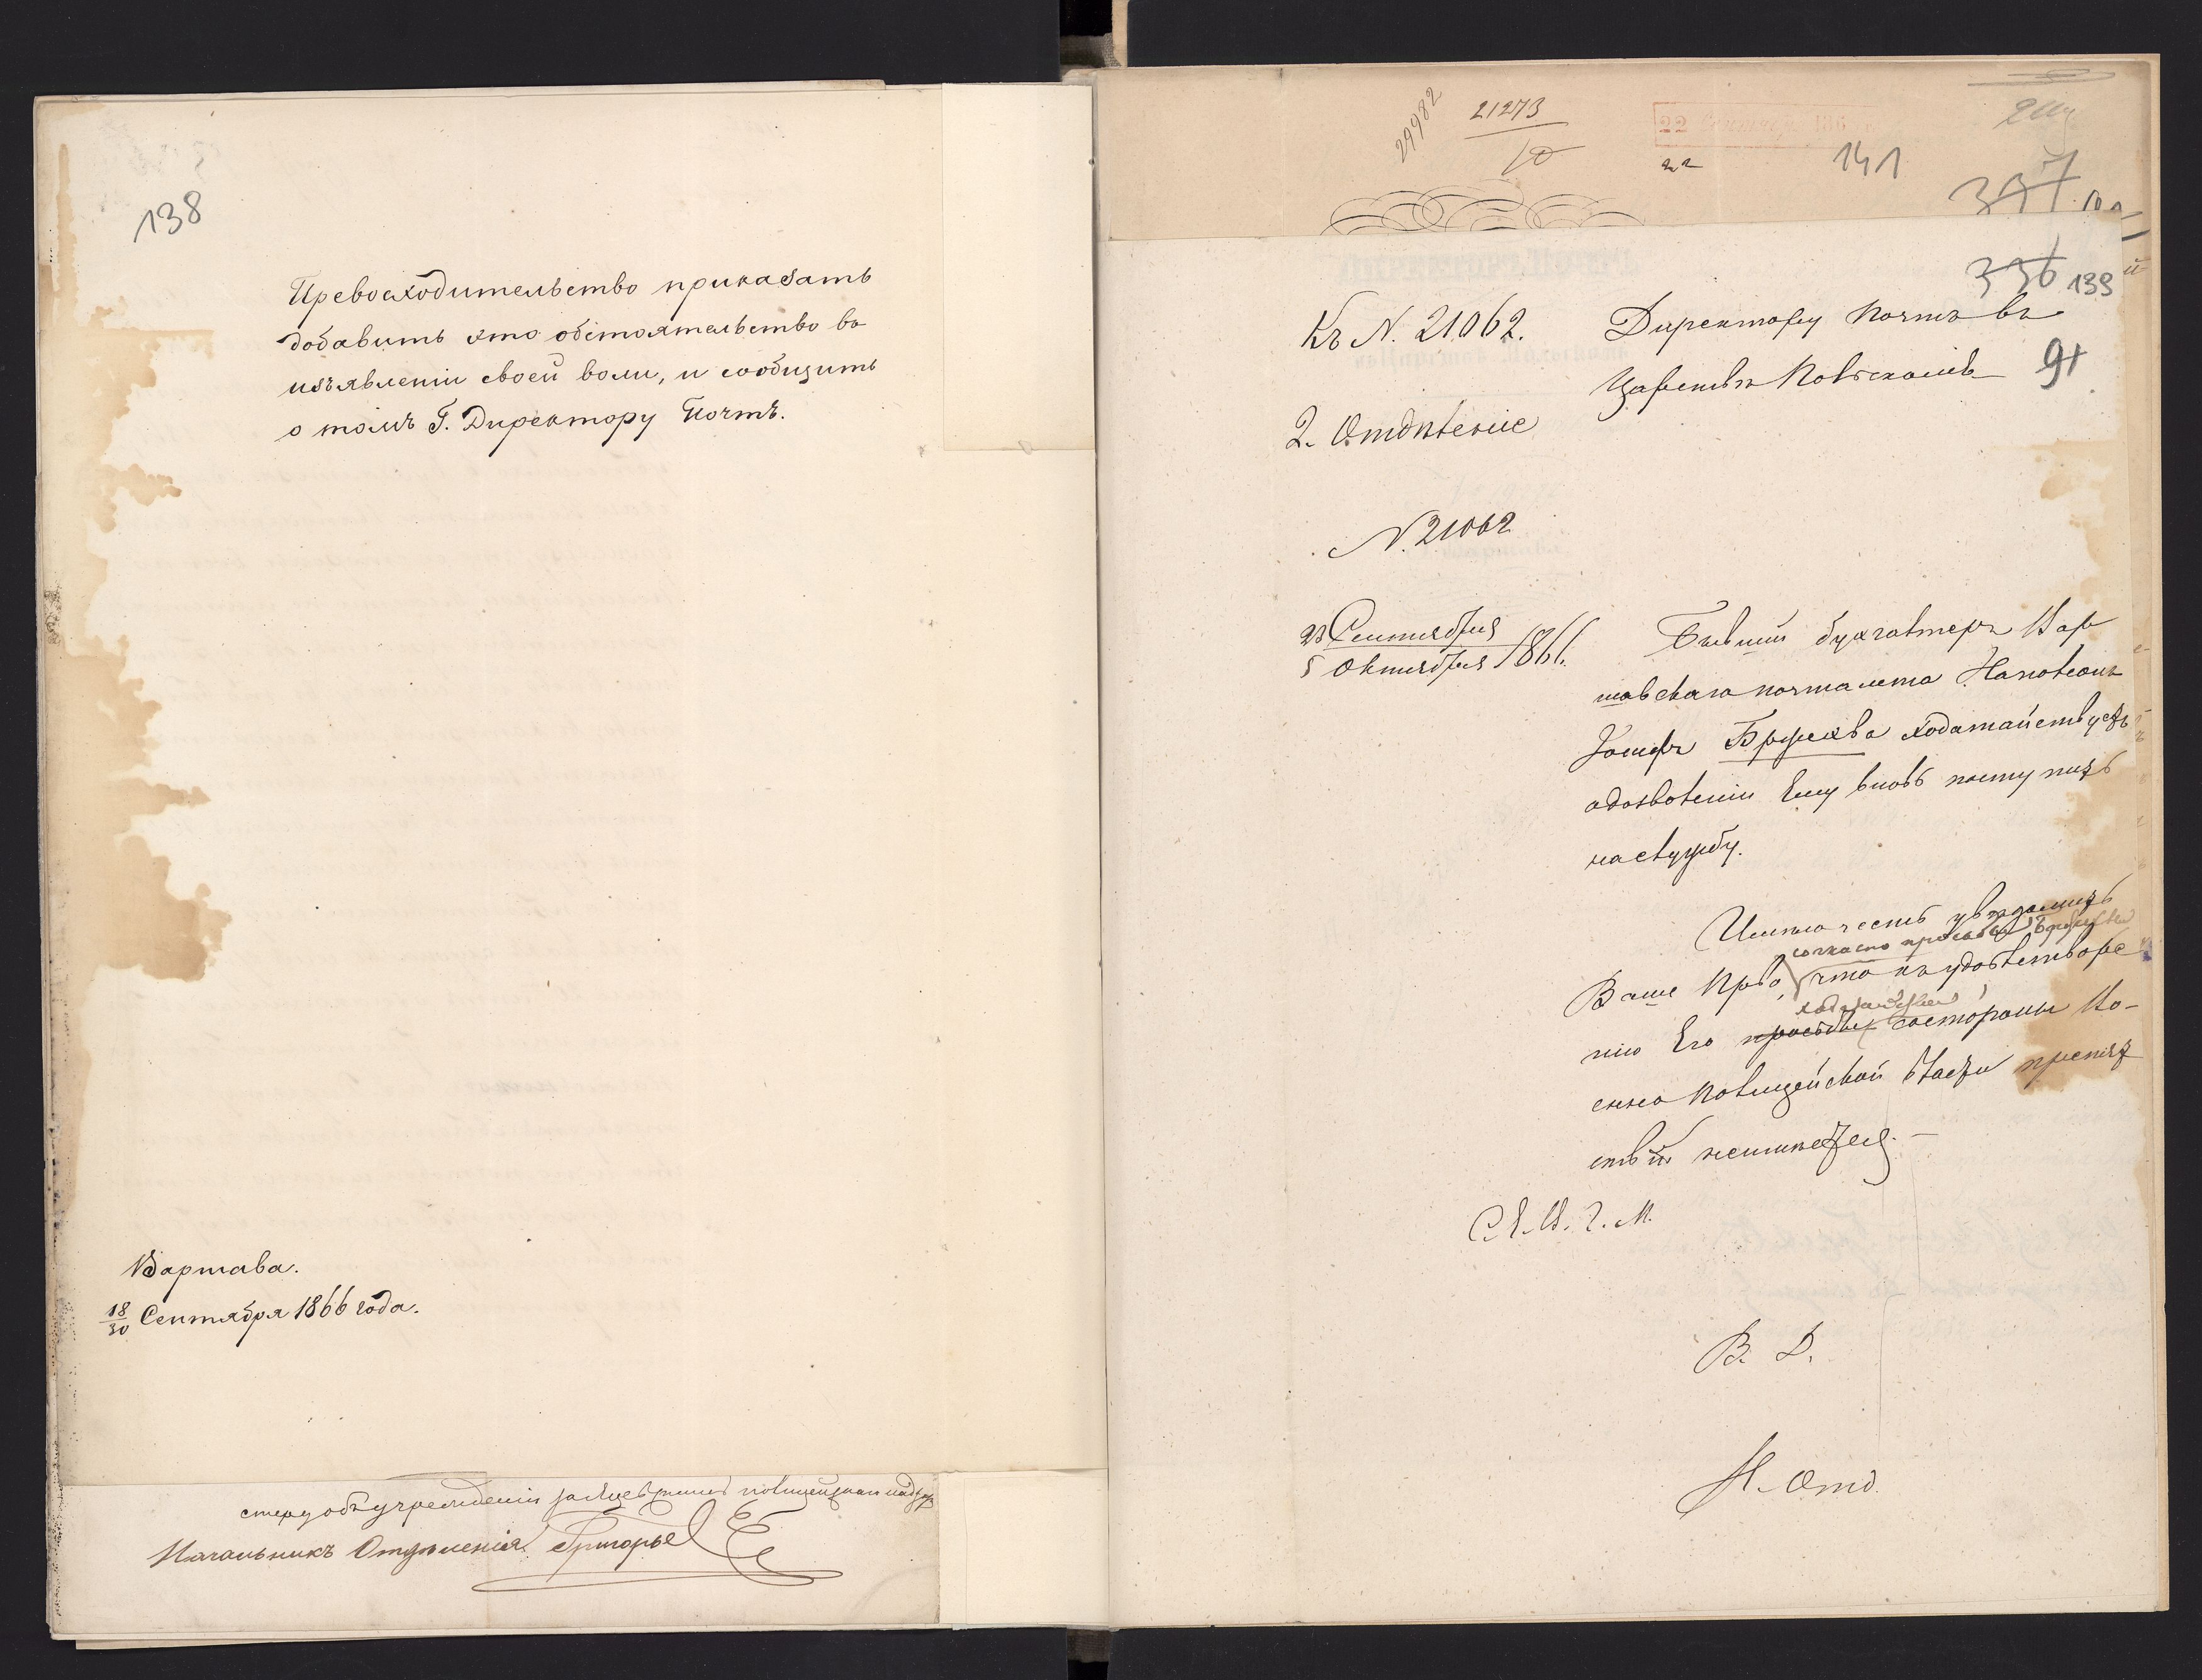 138
Превосходительство приказать
добавить это обстоятельство въ
изъявленіи своей воли, и сообщить
о томъ Г. Директору Почтъ.
Варшава.
18/30 Сентября 1866 года.
объ учрежденіи
Начальникъ Отдѣленія Григорье
29982
21273
10
22 Сентяб 186
22
141
337
336 139
91
Къ N. 21062.
Директору Почтъ въ
Царствѣ Польскомъ
2. Отдѣленіе
N. 21062
23 Сентября
5 Октября 1866.
Бывшій бухгалтеръ Вар
шавскаго почтамта Наполеонъ
Іосифъ ходатайствуетъ
о дозволеніи Ему вновь поступить
на службу.
Имѣю честь увѣдомить
согласно просьбы
Ваше Прво, что къ удовлетворе
нію Его просьбы со стороны Во-
енно Полицейской власти препят
ствій неимѣется.—
С. Е. И. Г. М.
В. Д.
Н. Отд.